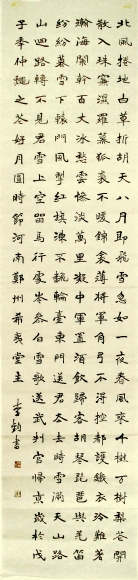 北風捲地白草折胡天八月即飛雪忽如一夜春風來千樹萬樹梨花開
散入珠簾濕羅幕狐裘不暖錦衾薄將軍角弓不得控都護鐵衣冷難著
瀚海闌干百丈冰愁雲慘淡萬里凝中軍置酒飲歸客胡琴琵琶與羌笛
紛紛暮雪下轅門風掣紅旗凍不翻輪臺東門送君去去時雪滿天山路
山迴路轉不見君雪上空留馬行處岑參白雪歌送武判官歸京歲於戊
子季仲之花好月圓時節河南鄭州希夷堂主